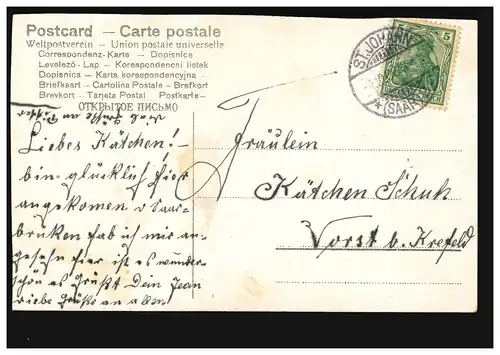 Postcard — Carte postale
Weltpostverein — Union postale universelle
Correspondenz-Karte — Dopisnice
Levelező-Lap — Korespondenční lístek
Dopisnica — Karta korespondencyjna
Briefkaart — Cartolina Postale — Brefkort
Brevkort — Tarjeta Postal Postkarte
ОТКРЫТОЕ ПИСЬМО
Viele Grüße an
Liebes Kätchen!
bin glücklich hier
angekommen Saar-
brüken hab ich mir an-
gesehn hier ist es wunder
schön es grüßt Dein Jean
viele Grüße an allen
ST. JOHANN
(SAAR)
5 5
Fräulein
Kätchen Schuh
Vorst b. Krefeld